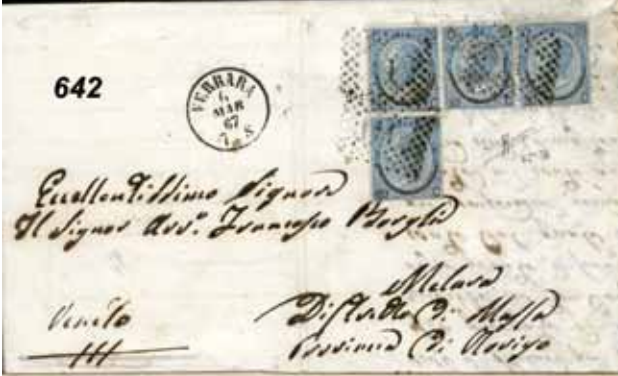 642
FERRARA
6
MAR
67
7 S
Eccellentissimo Signore
Il Signor Avv.º Francesco
Melara
Distretto di Massa
Provincia di Rovigo
Veneto